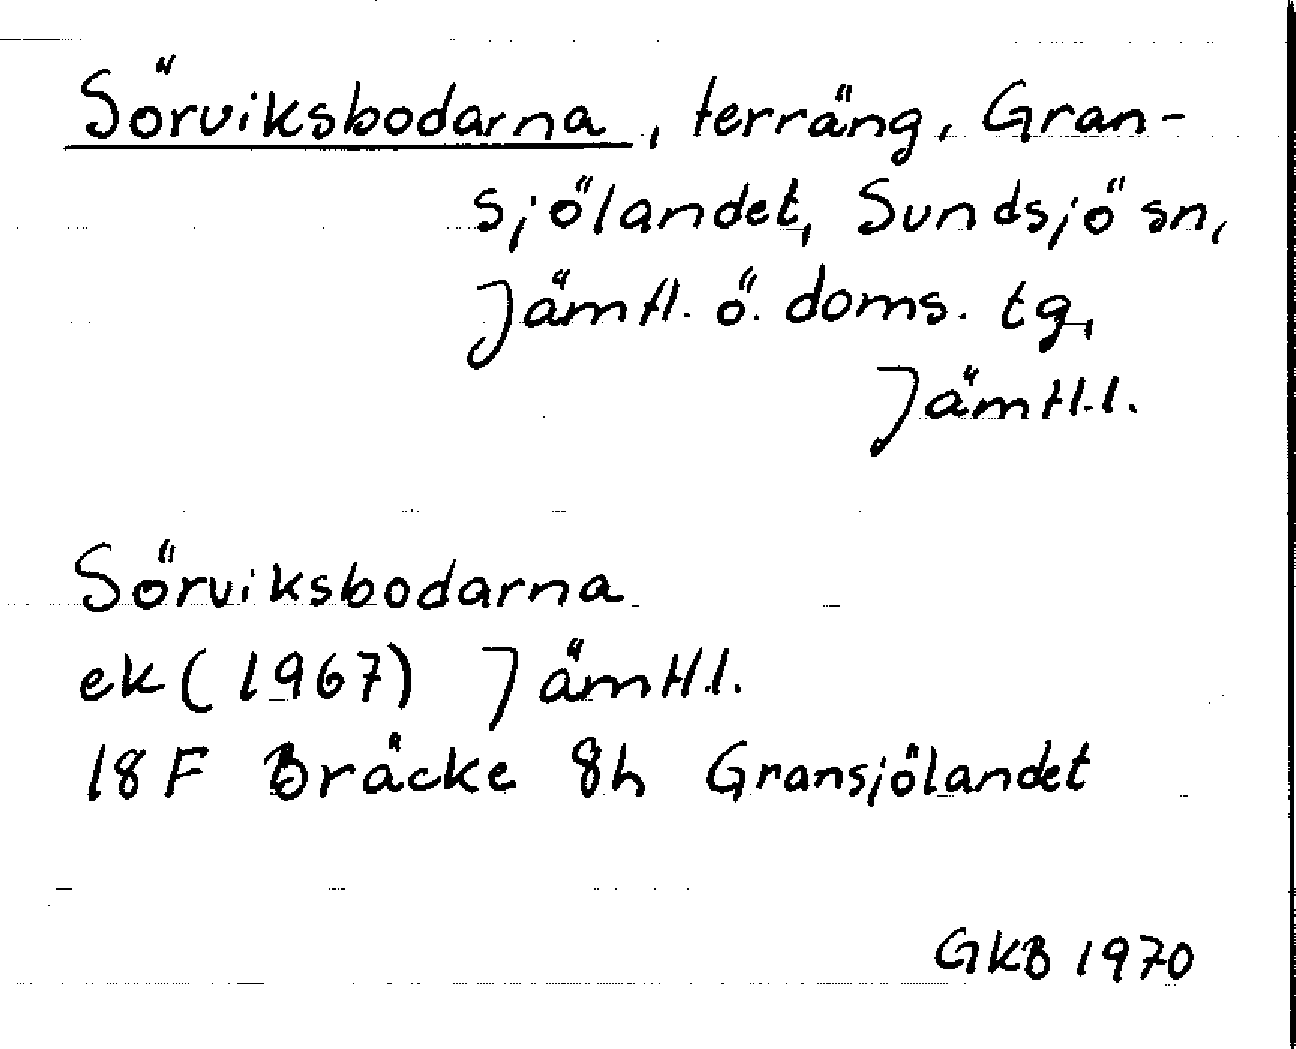 Sörviksbodarna, terräng, Gran-
sjölandet, Sundsjö sn,
Jämtl. ö. doms. tg,
Jämtl.l.
Sörviksbodarna
ek (1967) Jämtl.l.
18F Bräcke 8h Gransjölandet
GKB 1970